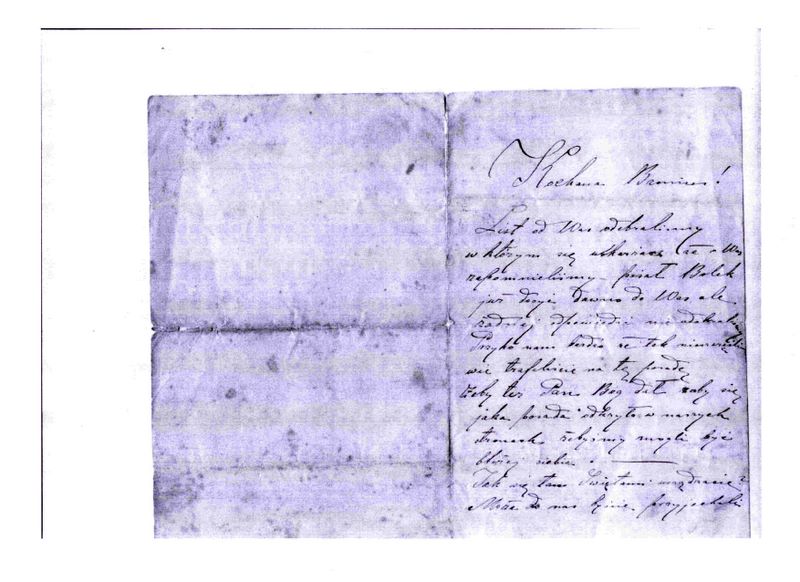 Kochana Broniu!
List od Was odebraliśmy
w którym się uskarżasz że o Was
zapomnieliśmy pisał Bolek
już dosyć dawno do Was ale
żadnej odpowiedzi nie
Przykro nam że tak
wie trafiliście na tę posadę
żeby też Pan Bóg dał żeby się
jaka posada w naszych
stronach żebyśmy mogli być
bliżej siebie. —
Jak się tam Świętami urządzacie?
Może do nas przyjechali